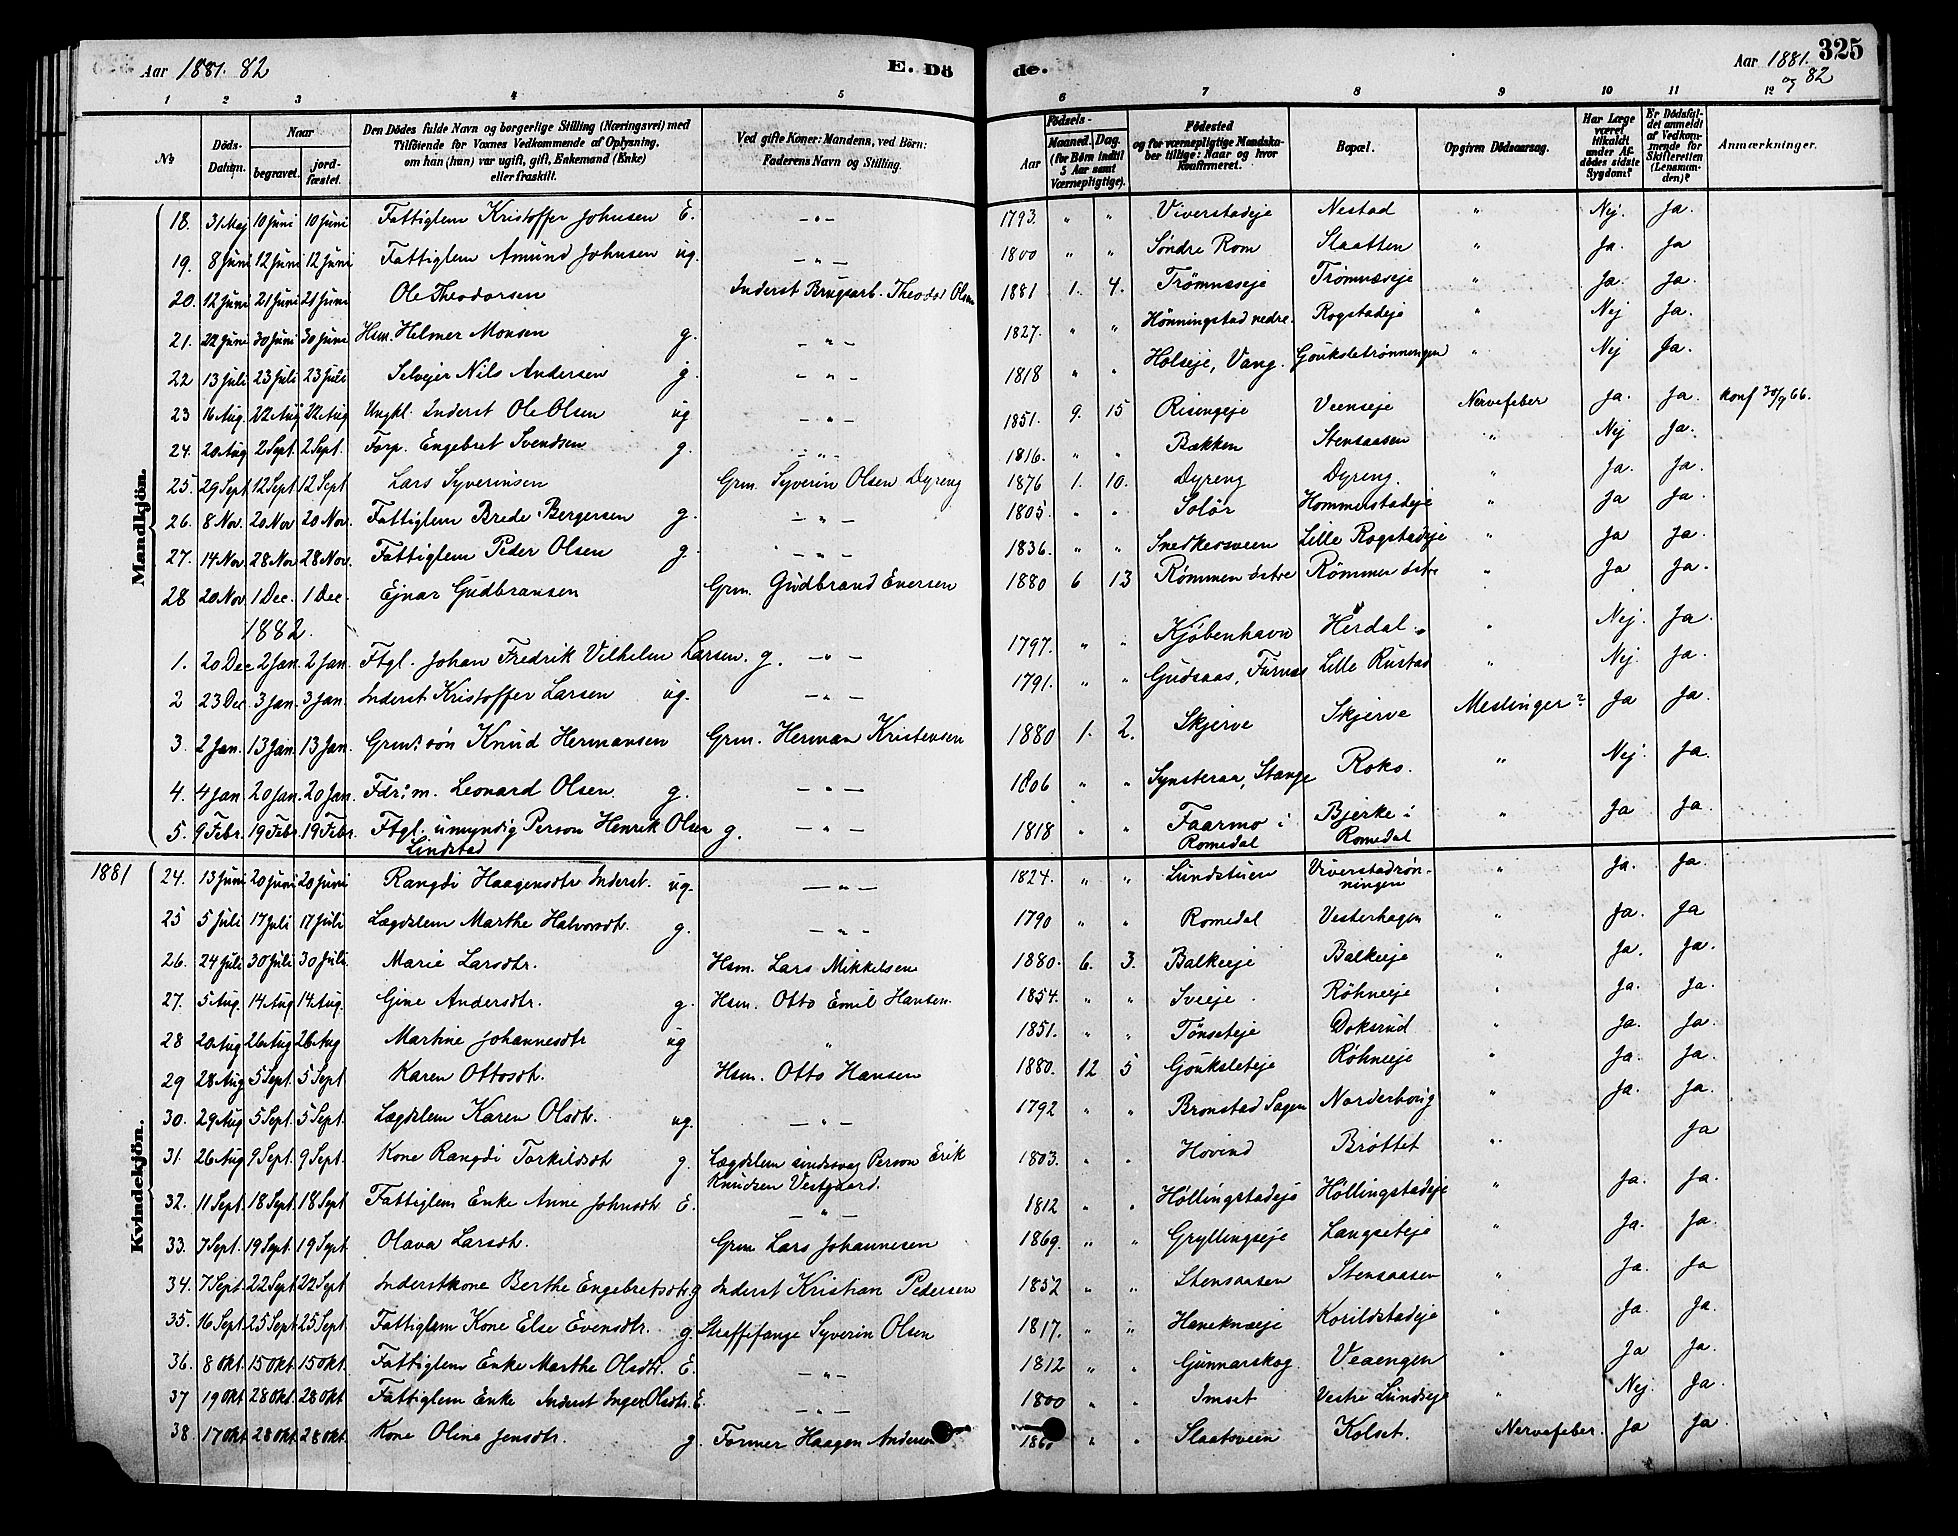 Aar 1881. 82 E. Dö
de. Aar 1881. 325
og 82
1 2 3 4 5 6 7 8 9 10 11 12
No Döds-Datum. Naar begravet. jord-fæstet. Den Dödes fulde Navn og borgerlige Stilling (Næringsvei) med Tilföiende for Voxnes Vedkommende af Oplysning, om han (hun) var ugift, gift, Enkemand (Enke) eller fraskilt. Ved gifte Koner: Mandens, ved Börn: Faderens Navn og Stilling. Födsels- Aar Maaned. Dag. (for Börn indtil 5 Aar samt Værnepligtige). Födested og for værnepligtige Mandska-ber tillige: Naar og hvor Konfirmeret. Bopæl. Opgiven Dödsaarsag. Har Læge været tilkaldt under Af-dödes sidste Sygdom? Er Dödsfal-det anmeldt af Vedkom-mende for Skifteretten (Lensman-den)? Anmærkninger.
Mandkjön.
18. 31 Maj 10 Juni 10 Juni Fattiglem Kristoffer Johnsen E. — " — 1793. " " Viverstadeje Nestad " Nej. Ja.
19. 8 Juni 12 Juni 12 Juni Fattiglem Amund Johnsen ug. — " — 1800 " " Søndre Rom Slaatten " Ja. Ja
20. 12 Juni 21 Juni 21 Juni Ole Theodorsen Inderst Brugsarb. Theodor Olsen 1881 1. 4. Trømnæseje Trømnæseje " Ja. Ja.
21. 22 Juni 30 Juni 30 Juni Hsm. Helmer Monsen g. — " — 1827. " " Hønningstad nedre. Rogstadeje " Nej Ja.
22 13 Juli 23 Juli 23 Juli Selvejer Nils Andersen g. — " — 1818 " " Holseje, Vang. Gaukseterønningen " Nej Ja.
23 16 Aug. 22 Aug 22 Aug Ungkl. Inderst Ole Olsen ug — " — 1851. 9. 15 Risengeje Veenseje Nervefeber Ja. Ja. Konf 30/9 66.
24. 20 Aug 2 Sept. 2 Sept. Forp. Engebret Svendsen g. — " — 1816. " " Bakken Stensaasen " Nej Ja.
25. 29 Sept. 12 Sept. 12 Sept Lars Syverinsen Grm. Syverin Olsen Dyreng 1876 1. 10. Dyreng Dyreng. " Ja. Ja.
26. 8 Nov. 20 Nov 20 Nov. Fattiglem Brede Bergersen g. — " — 1805. " " Solør Hommerstadeje " Ja Ja.
27. 14 Nov. 28 Nov 28 Nov. Fattiglem Peder Olsen g — " — 1836. " " Snedkersveen Lille Rogstadeje " Ja Ja.
28 20 Nov. 1 Dec. 1 Dec. Ejnar Gudbransen Grm. Gudbrand Evensen 1880 6 13 Rømmen østre Rømmen østre " Ja Ja.
1882.
1. 20 Dec 2 Jan. 2 Jan. Ftgl. Johan Fredrik Vilhelm Larsen. g. — " — 1797. " " Kjøbenhavn Herdal. " Nej. Ja.
2 23 Dec 3 Jan. 3 Jan. Inderst Kristoffer Larsen ug. — " — 1791. " " Gudsaas, Furnæs Lille Rustad " Nej. Ja.
3. 2 Jan. 13 Jan 13 Jan. Grm. søn Knud Hermansen Grm. Herman Kristensen 1880 1. 2. Skjerve Skjerve Meslinger? Ja Ja.
4. 4 Jan 20 Jan. 20 Jan. Fdr. m. Leonard Olsen g. — " — 1806 " " Synsteraa, Stange Roko. " Nej. Ja.
5. 9 Febr. 19 Febr. 19 Febr. Ftgl. umyndig Person Henrik Olsen g. — " — 1818 " " Faarmo i Bjerke i " Ja Ja.
Lindstad Romedal Romedal
1881
Kvindekjön.
24. 13 Juni 20 Juni 20 Juni Rangdi Haagensdtr Inderst. ug. — " — 1824. " " Lundstuen Viverstadrøn- " Ja. Ja.
ningen
25 5 Juli 17 Juli 17 Juli Lægdslem Marthe Halvorsdtr. g. — " — 1790 " " Romedal Vesterhagen " Ja. Ja
26. 24 Juli 30 Juli 30 Juli. Marie Larsdtr. Hsm. Lars Mikkelsen 1880. 6. 3. Balkeeje Balkeeje " Ja. Ja.
27. 5 Aug. 14 Aug 14 Aug. Gine Andersdtr. g. Hsm. Otto Emil Hansen. 1854. " " Sveeje. Røhneeje " Ja. Ja.
28 20 Aug 26 Aug 26 Aug Martine Johannesdtr ug " 1851. " " Tønseteje Doksrud " Ja. Ja.
29 28 Aug 5 Sept. 5 Sept Karen Ottosdt. Hsm. Otto Hansen 1880. 12 5 Gaukseteje Røhneeje " Ja. Ja.
30. 29 Aug 5 Sept. 5 Sept. Lægdslem Karen Olsdtr. ug. — " — 1792 " " Bronstad Sagen Norderhoug " Ja. Ja.
31. 26 Aug 9 Sept. 9 Sept. Kone Rangdi Torkildsdt g. Lægdslem sindssvag Person Erik 1803. " " Hovind Brøttet " Ja
Knudsen Vestgaard.
32. 11 Sept. 18 Sept. 18 Sept. Fattiglem Enke Anne Johnsdtr E. — " — 1812 " " Høllingstadeje Høllingstadeje " Ja. Ja.
33. 7 Sept. 19 Sept. 19 Sept. Olava Larsdt. Grm Lars Johannesen 1869. " " Gryllingseje Langseteje " Ja. Ja.
34. 7 Sept. 22 Sept 22 Sept Inderstkone Berthe Engebretsdtr g Inderst Kristian Pedersen 1852 " " Stensaasen Stensaasen " Ja. Ja
35. 16 Sept. 25 Sept. 25 Sept. Fattiglem Kone Else Evensdtr. g. Straffefange Syverin Olsen 1817. " " Haneknæeje Korildstadeje " Ja. Ja.
36. 8 Okt. 15 Okt. 15 Okt. Fattiglem Enke Marthe Olsdtr. E. — " — 1812 " " Gunnarskog Veaengen " Ja Ja.
37 19 Okt. 28 Okt. 28 Okt. Fattiglem Enke Inderst Inger Olsdtr. E. — " — 1800 " " Imset Vestre Lundseje " Nej. Ja.
38. 17 Okt. 28 Okt. 28 Okt. Kone Oline Jensdtr. g. Former Haagen Andersen " " Slaatsveen Kolset. Nervefeber. Ja Ja.